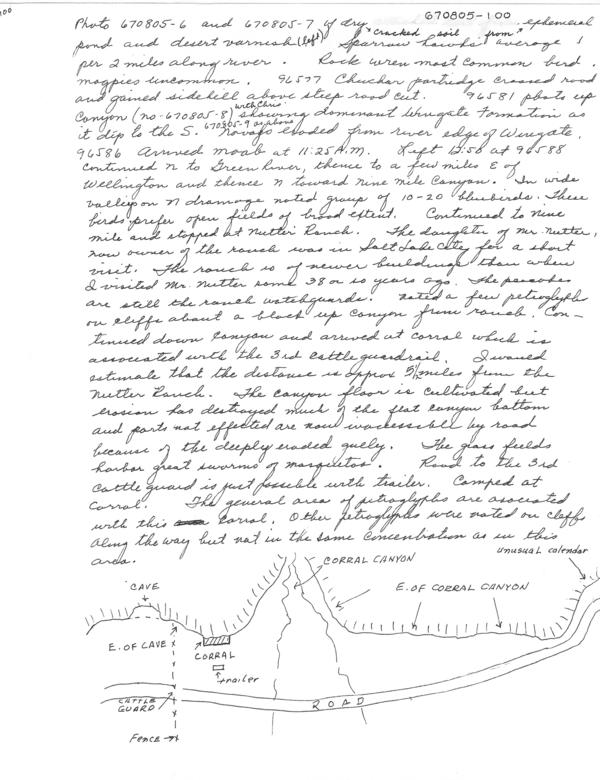 100
670805-100
Photo 670805-6 and 670805-7 of dry cracked soil from ephemeral
pond and desert varnish (left). Sparrow hawks average 1
per 2 miles along river. Rock wren most common bird.
magpies uncommon. 96577 Chuckar partridge crossed road
and gained sidehill above steep road cut. 96581 photo up
Canyon (no-670805-8) with Chris showing dominant Wingate Formation as
it dips to the S. 670805-9 as above Navajo eroded from river edge of Wingate.
96586 Arrived moab at 11:25 A.M. Left 12:50 at 96588
Continued N to Green River, thence to a few miles E of
Wellington and thence N toward nine mile Canyon. In wide
valley on N drainage noted group of 10-20 bluebirds. These
birds prefer open fields of broad extent. Continued to Nine
mile and stopped at Nutter Ranch. The daughter of Mr. Nutter,
now owner of the ranch was in Salt Lake City for a short
visit. The ranch is of newer buildings than when
I visited Mr. Nutter some 38 or so years ago. The peacocks
are still the ranch watchguards. Noted a few petroglyphs
on cliffs about a block up canyon from ranch. Con-
tinued down Canyon and arrived at corral which is
associated with the 3rd cattleguard rail. I would
estimate that the distance is approx 5½ miles from the
Nutter Ranch. The Canyon floor is cultivated but
erosion has destroyed much of the flat canyon bottom
and parts not effected are now inaccessible by road
because of the deeply eroded gulley. The grass fields
harbor great swarms of mosquetos. Road to the 3rd
Cattle guard is just possible with trailer. Camped at
Corral. The general area of petroglyphs are asociated
with this corral. Other petroglyphs were noted on cleffs
along the way but not in the same concentration as in this
area.
unusual calendar
CORRAL CANYON
CAVE
E. OF CORRAL CANYON
E. OF CAVE
CORRAL
trailer
CATTLE
GUARD
ROAD
Fence